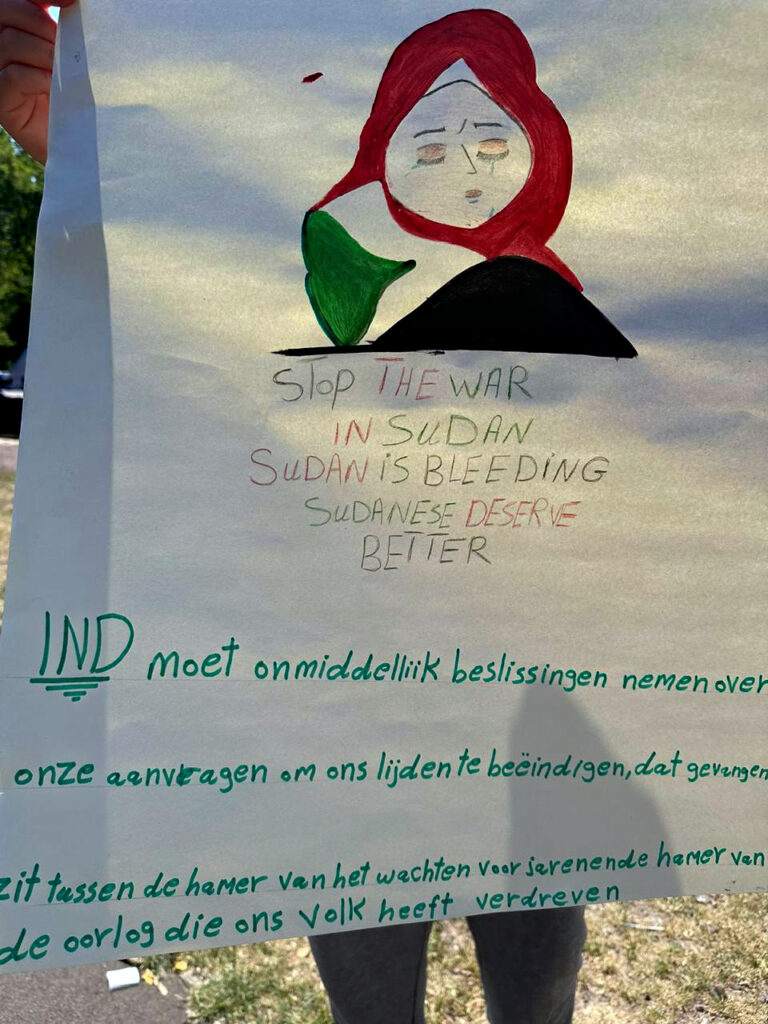 STOP THE WAR
IN SUDAN
SUDAN IS BLEEDING
SUDANESE DESERVE
BETTER
IND moet onmiddelliik beslissingen nemen over
onze aanvragen om ons lijden te beëindigen, dat gevangen
zit tussen de hamer van het wachten voor jarenende hamer van
de oorlog die ons volk heeft verdreven